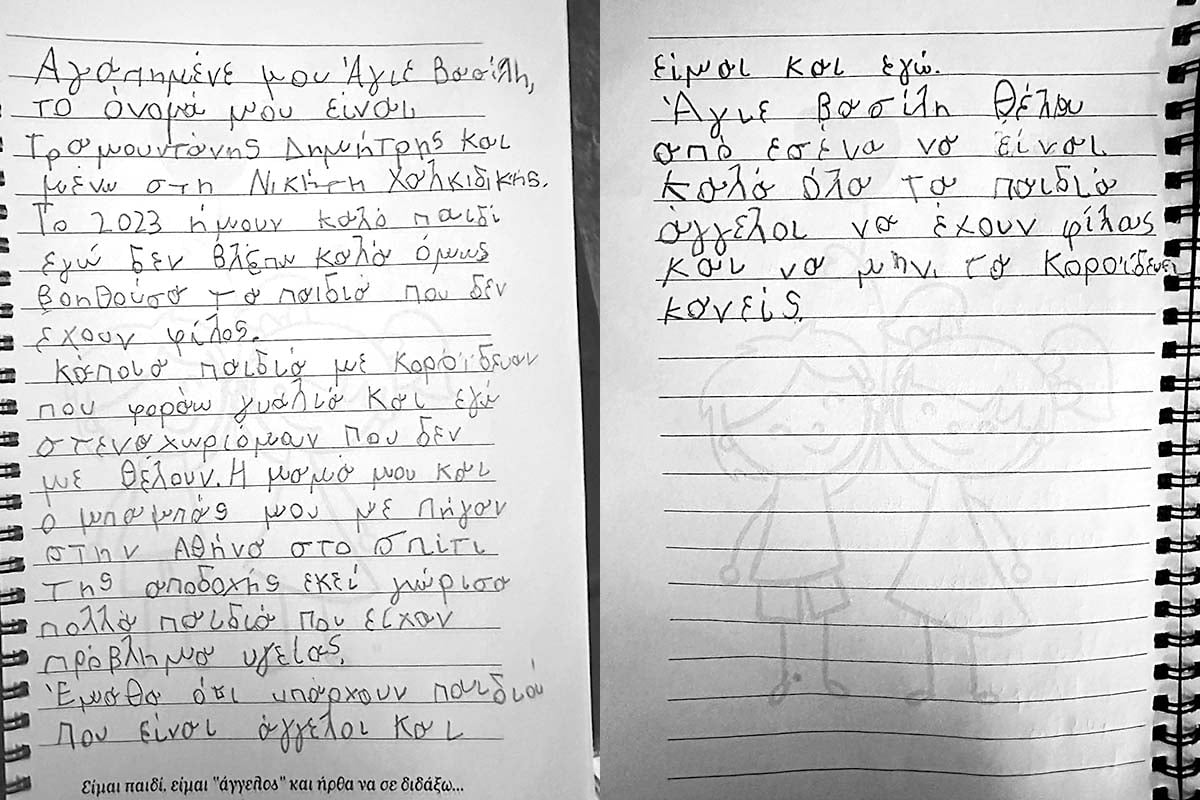 Αγαπημένε μου Άγιε Βασίλη,
το όνομά μου είναι
Τραμουντάνης Δημήτρης και
μένω στη Νικήτη Χαλκιδικής.
Το 2023 ήμουν καλό παιδί
εγώ δεν βλέπω καλά όμως
βοηθούσα τα παιδιά που δεν
έχουν φίλος.
Κάποιο παιδιά με κοροϊδευαν
που φοράω γυαλιά και εγώ
στεναχωριόμαν που δεν
με θέλουν. Η μαμά μου και
ο μπαμπάς μου με πήγαν
στην Αθήνα στο σπίτι
της αποδοχής εκεί γώρισα
πολλά παιδιά που είχαν
πρόβλημα υγείας.
Έμαθα ότι υπάρχουν παιδιού
που είναι άγγελοι και
Είμαι παιδί, είμαι "άγγελος" και ήρθα να σε διδάξω...
είμαι και εγώ.
Άγιε Βασίλη θέλου
από εσένα να είναι
καλά όλα τα παιδιά
άγγελοι να έχουν φίλος
και να μην τα κοροϊδευει
κανείς.